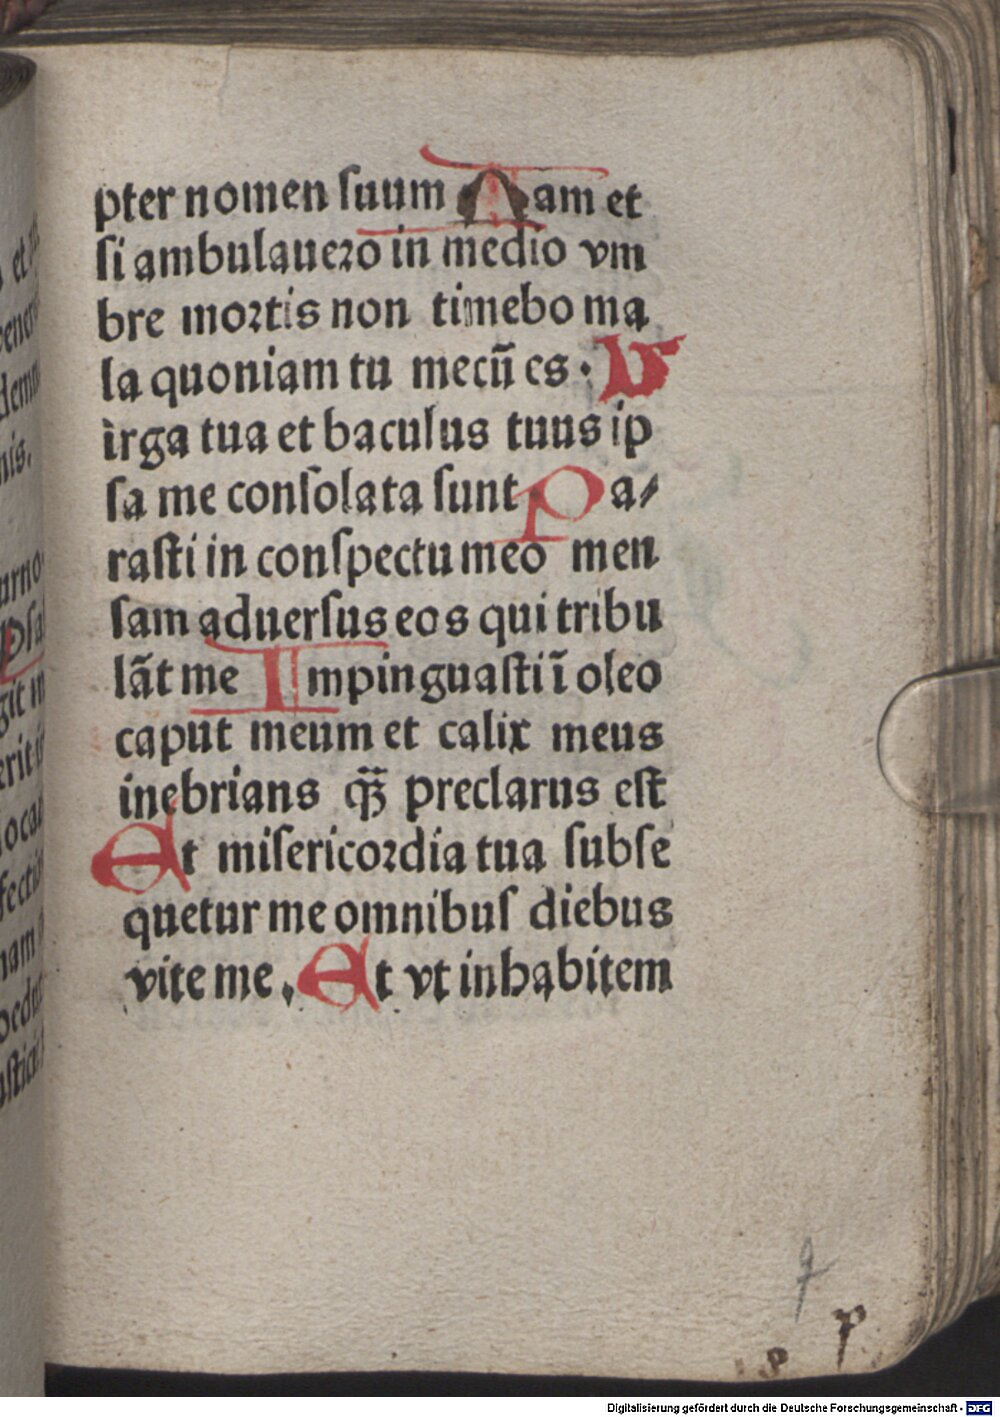 pter nomen suum Nam et
si ambulauero in medio vm
bre mortis non timebo ma
la quoniam tu mecū es. V
irga tua et baculus tuus ip
sa me consolata sunt Pa-
rasti in conspectu meo men
sam aduersus eos qui tribu
lāt me Impinguasti ī oleo
caput meum et calix meus
inebrians q̄ꝫ preclarus est
Et misericordia tua subse
quetur me omnibus diebus
vite me. Et vt inhabitem
p
p
Digitalisierung gefördert durch die Deutsche Forschungsgemeinschaft - DFG